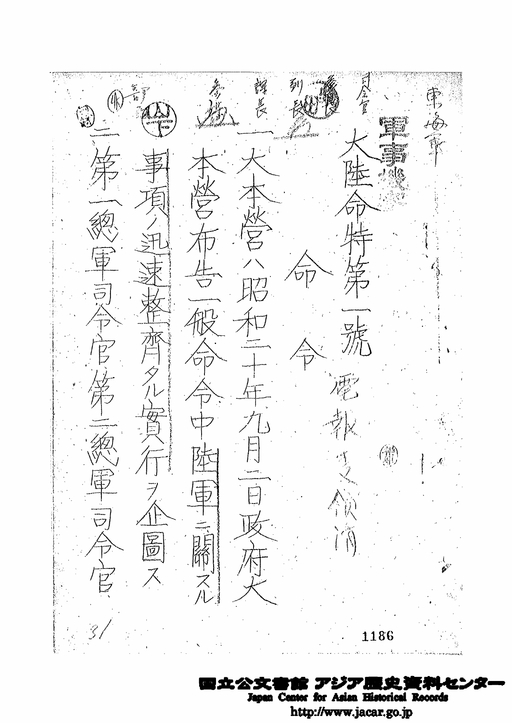 東海軍
軍事機
司令官
大陸命特第一號
電報ニテ受領済
命令
課長
参謀
一、大本營ハ昭和二十年九月二日政府大
本營布告一般命令中陸軍ニ關スル
事項ノ迅速整齊タル實行ヲ企圖ス
二、第一總軍司令官、第二總軍司令官、
31
1186
国立公文書館 アジア歴史資料センター
Japan Center for Asian Historical Records
http://www.jacar.go.jp